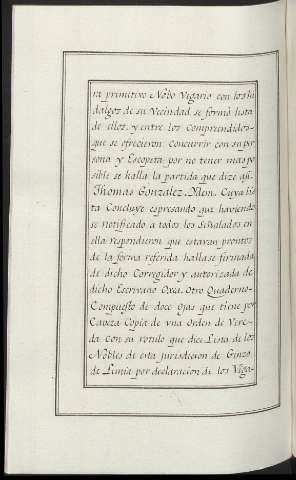 ra primitivo Nobo Vigario con los hi
dalgos de su Vecindad se formó lista
de ellos. y entre los Comprendidos-
que se ofrecieron Concurrir con su per
sona y Escopeta por no tener mas po
sible se halla la partida que dize asi.
Thomas Gonzalez. Ydem. Cuya lis
ta Concluye espresando que haviendo
se notificado a todos los señalados en
ella respondieron que estavan promtos
de la forma referida hallase firmada
de dicho Corregidor y autorizada de
dicho Escrivano Orea. Otro Quaderno-
Compuesto de doce Ojas que tiene por
Caveza Copia de vna Orden de Vere-
da con su rotulo que dice Lista de los
Nobles de esta jurisdicion de Ginzo
de Limia por declaracion de los Viga-